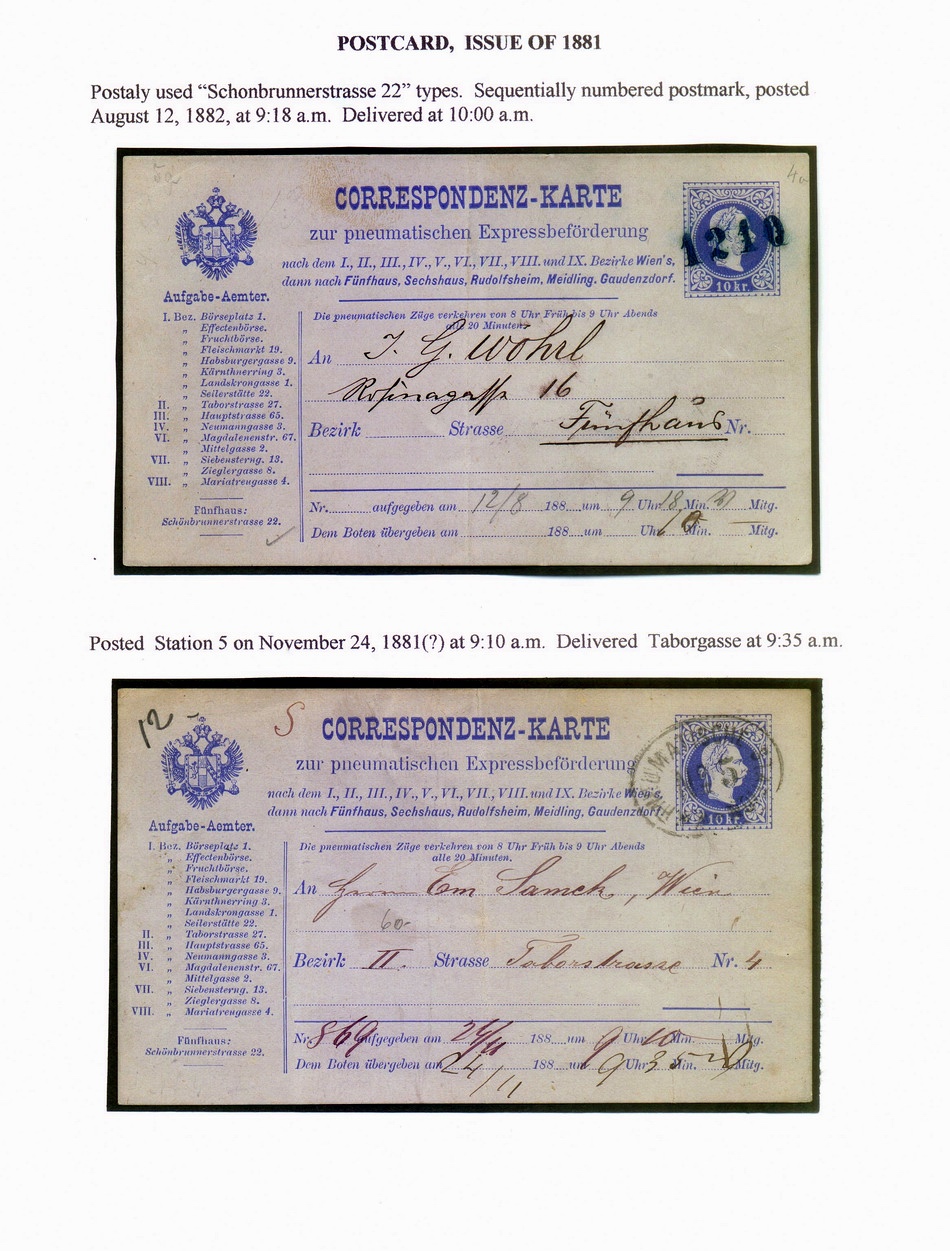 POSTCARD, ISSUE OF 1881
Postaly used “Schonbrunnerstrasse 22” types. Sequentially numbered postmark, posted
August 12, 1882, at 9:18 a.m. Delivered at 10:00 a.m.
CORRESPONDENZ-KARTE
zur pneumatischen Expressbeförderung
nach dem I., II., III., IV., V., VI., VII., VIII. und IX. Bezirke Wien's,
dann nach Fünfhaus, Sechshaus, Rudolfsheim, Meidling, Gaudenzdorf.
1210
10 kr.
Aufgabe-Aemter.
I. Bez. Börseplatz 1.
„ Effectenbörse.
„ Fruchtbörse.
„ Fleischmarkt 19.
„ Habsburgergasse 9.
„ Kärnthnerring 3.
„ Landskrongasse 1.
„ Seilerstätte 22.
II. „ Taborstrasse 27.
III. „ Hauptstrasse 65.
IV. „ Neumanngasse 3.
VI. „ Magdalenenstr. 67.
„ Mittelgasse 2.
VII. „ Siebensterng. 13.
„ Zieglergasse 8.
VIII. „ Mariatreugasse 4.
Fünfhaus:
Schönbrunnerstrasse 22.
Die pneumatischen Züge verkehren von 8 Uhr Früh bis 9 Uhr Abends
alle 20 Minuten.
An J. G. Wöhrl
Rosinagasse 16
Bezirk Strasse Fünfhaus Nr.
Nr. aufgegeben am 12/8 188 um 9 Uhr 18 Min. Mitg.
Dem Boten übergeben am 188 um Uhr 10 Min. Mitg.
Posted Station 5 on November 24, 1881(?) at 9:10 a.m. Delivered Taborgasse at 9:35 a.m.
12 -
S
CORRESPONDENZ-KARTE
zur pneumatischen Expressbeförderung
nach dem I., II., III., IV., V., VI., VII., VIII. und IX. Bezirke Wien's,
dann nach Fünfhaus, Sechshaus, Rudolfsheim, Meidling, Gaudenzdorf.
5
10 kr.
Aufgabe-Aemter.
I. Bez. Börseplatz 1.
„ Effectenbörse.
„ Fruchtbörse.
„ Fleischmarkt 19.
„ Habsburgergasse 9.
„ Kärnthnerring 3.
„ Landskrongasse 1.
„ Seilerstätte 22.
II. „ Taborstrasse 27.
III. „ Hauptstrasse 65.
IV. „ Neumanngasse 3.
VI. „ Magdalenenstr. 67.
„ Mittelgasse 2.
VII. „ Siebensterng. 13.
„ Zieglergasse 8.
VIII. „ Mariatreugasse 4.
Fünfhaus:
Schönbrunnerstrasse 22.
Die pneumatischen Züge verkehren von 8 Uhr Früh bis 9 Uhr Abends
alle 20 Minuten.
An Herrn Em Samek, Wien
60-
Bezirk II. Strasse Taborstrasse Nr. 4
Nr. 869 aufgegeben am 24/11 188 um 9 Uhr 10 Min. Mitg.
Dem Boten übergeben am 24/11 188 um 9 Uhr 35 Mitg.